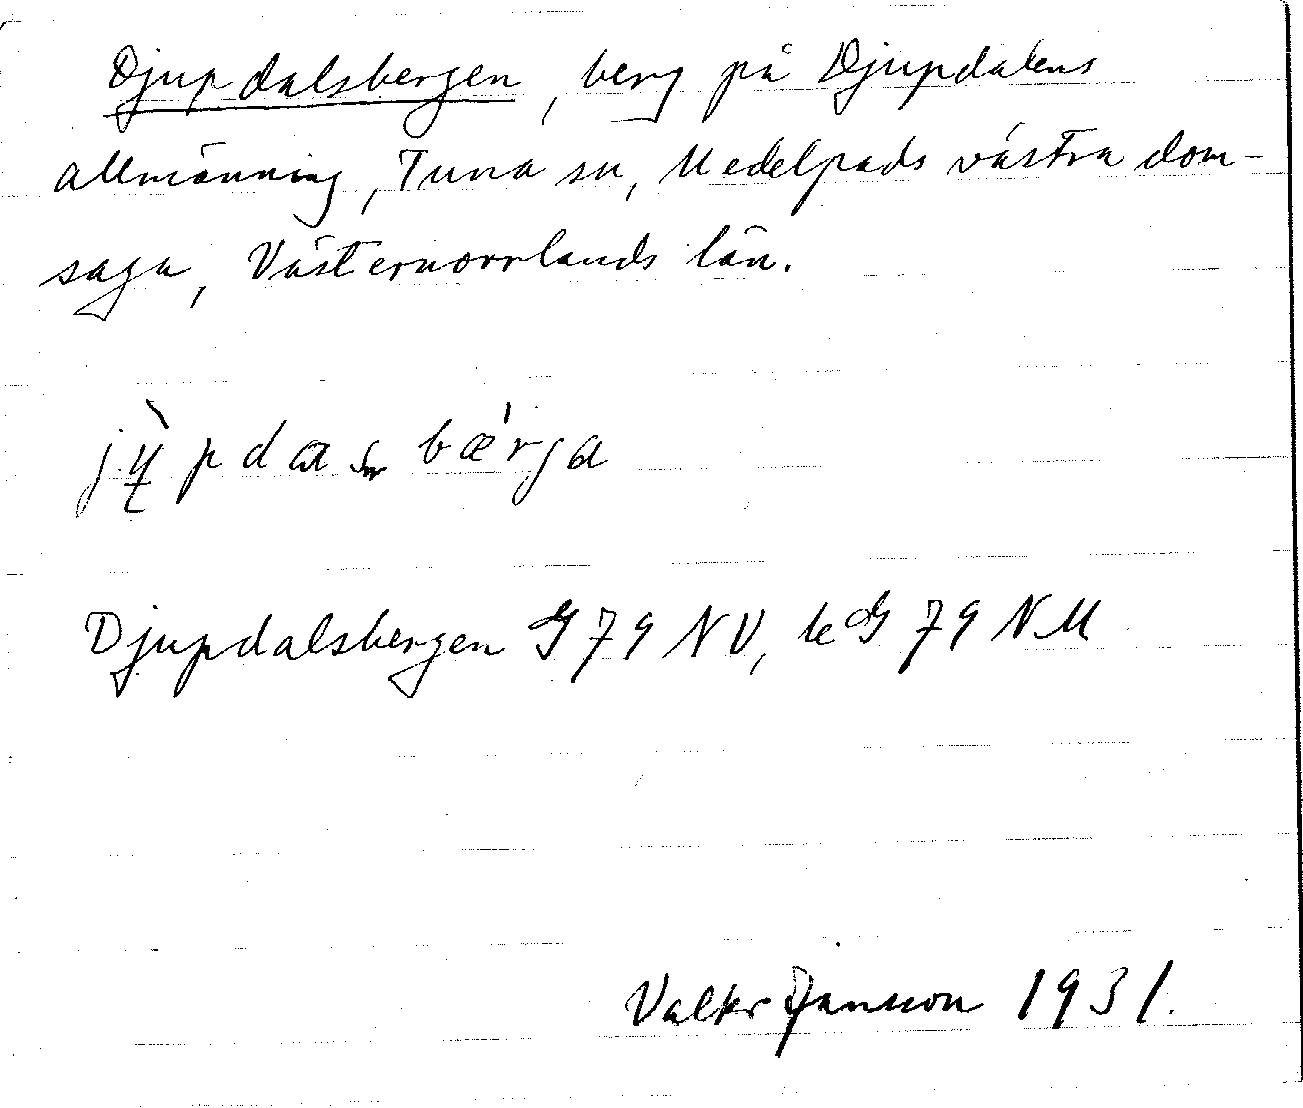 Djupdalsbergen, berg på Djupdalens
allmänning, Tuna sn, Medelpads västra dom-
saga, Västernorrlands län.
Djupdalsbergen G 79 NV, le G 79 NM
Valter Jansson 1931.